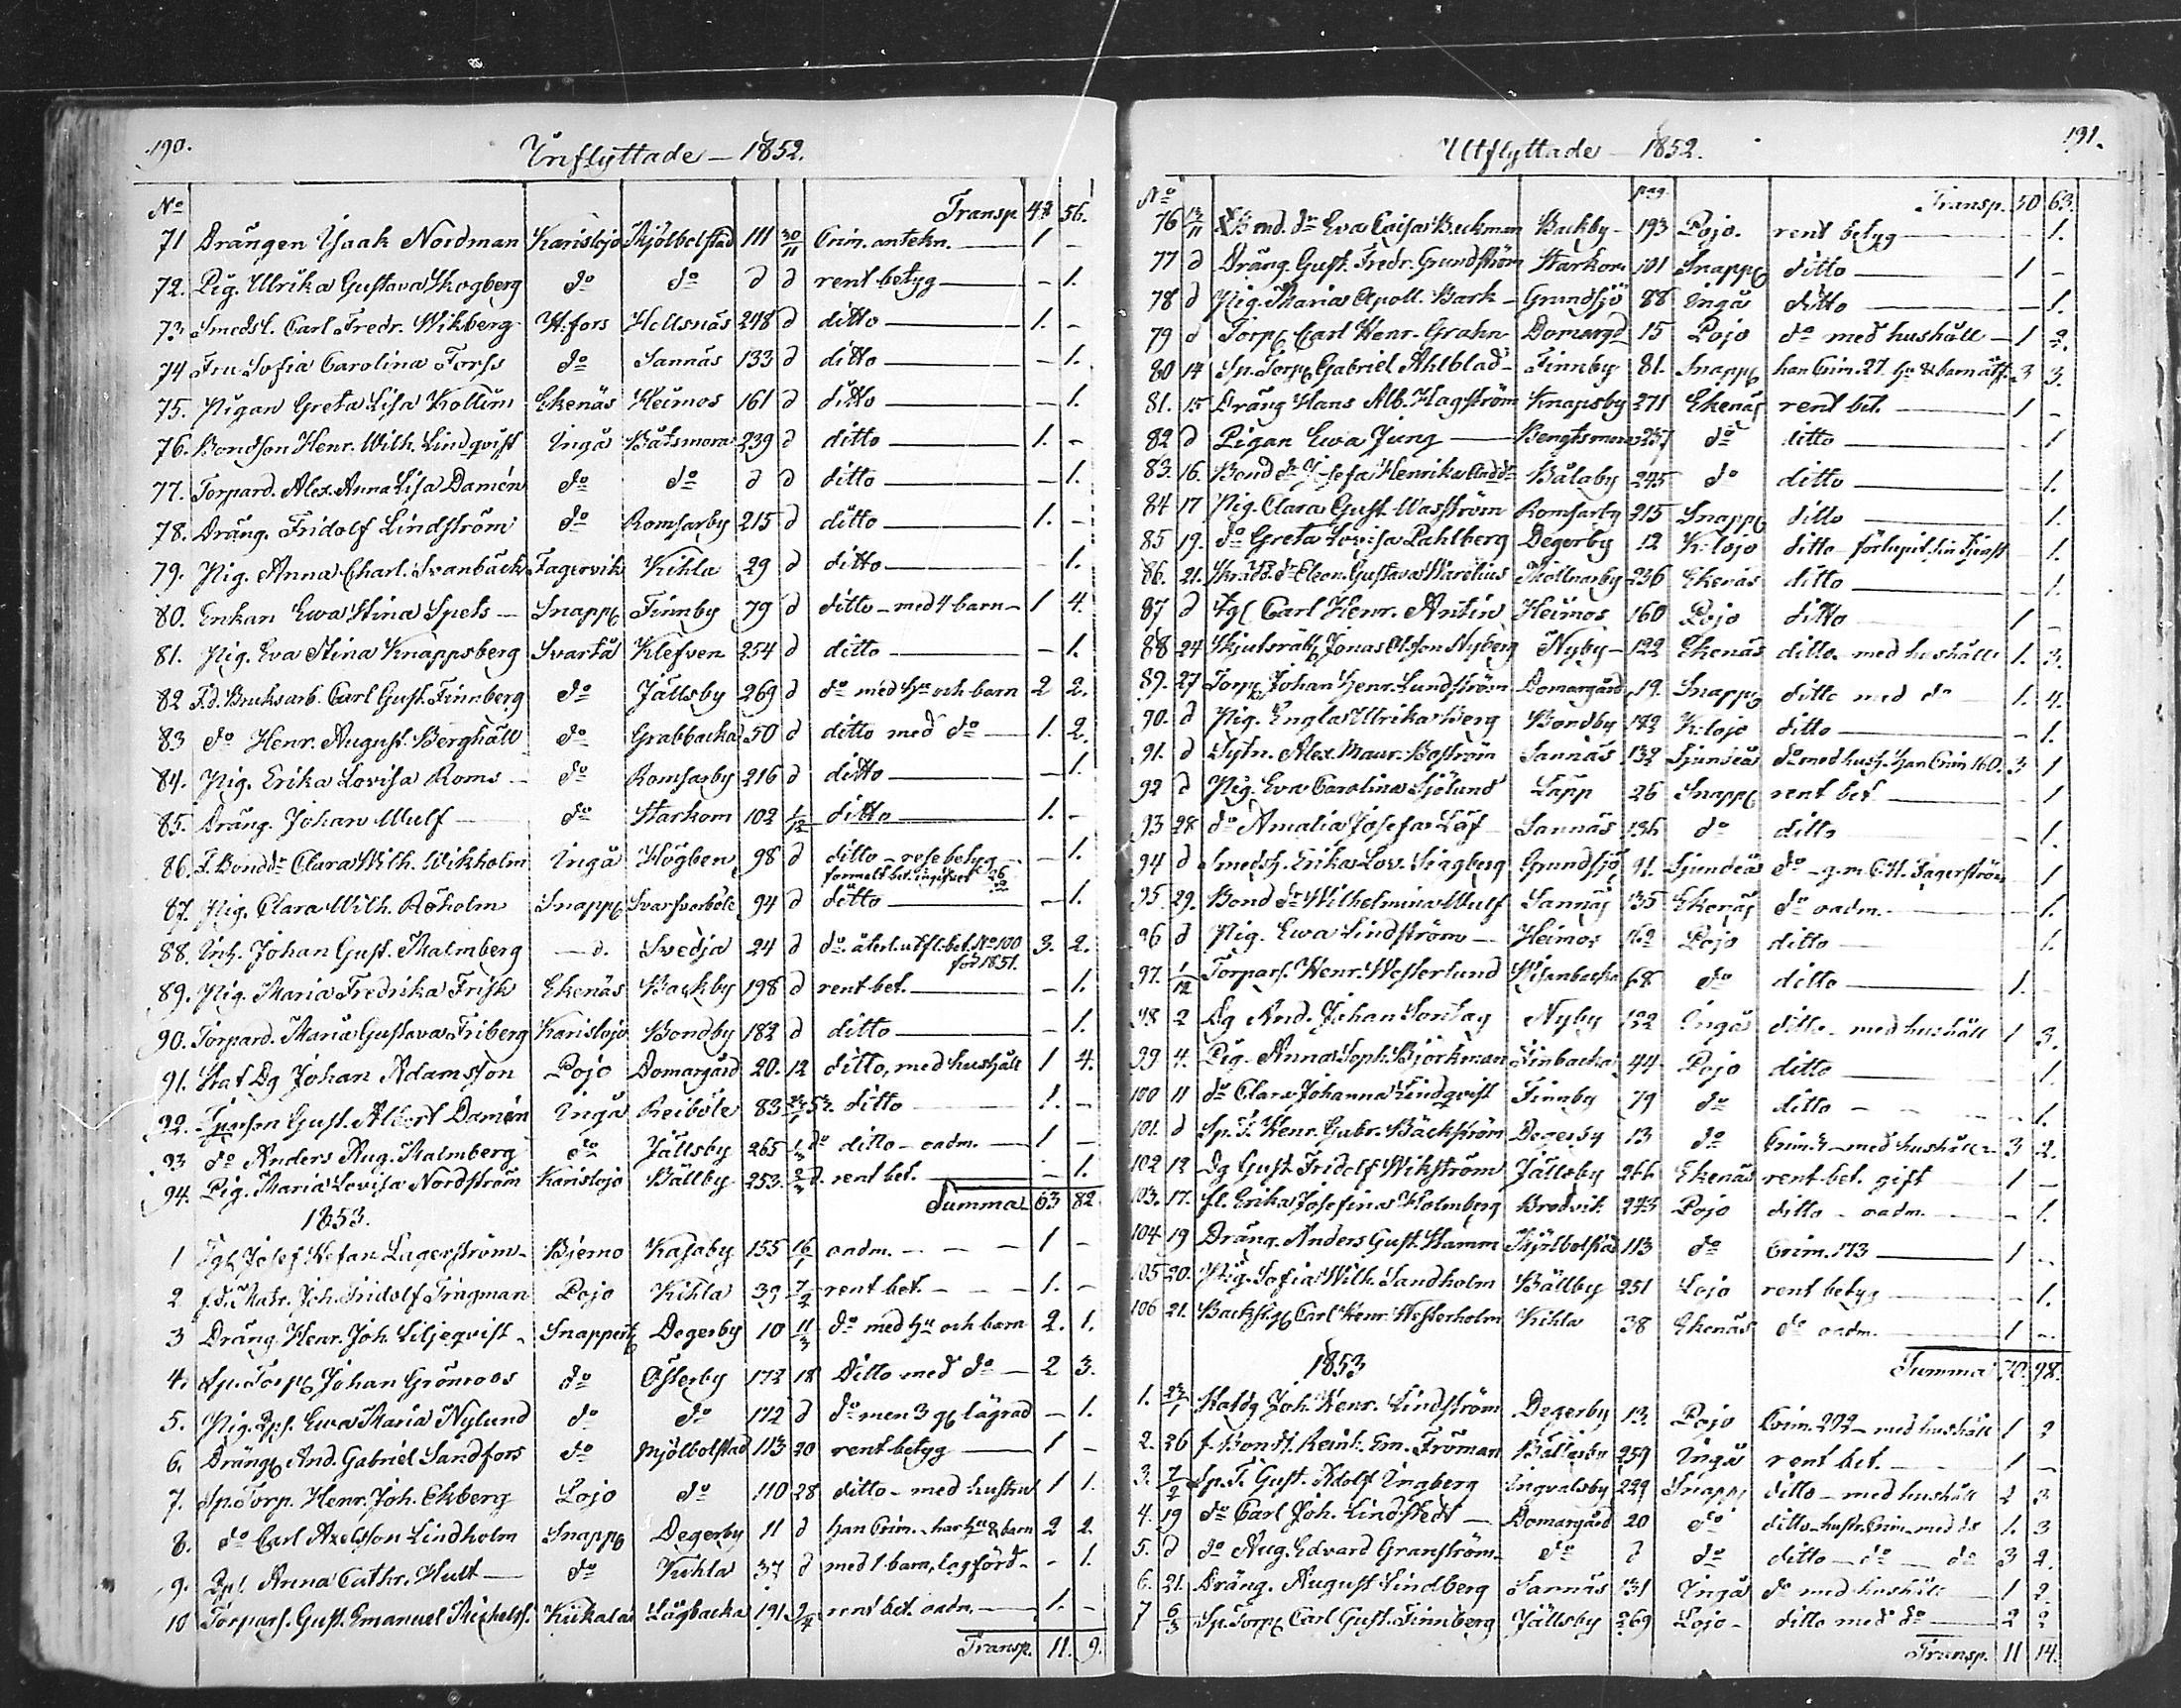 190.
Inflyttade — 1852.
No Transp. 48 56.
71 Drängen Isaak Nordman Karislojo Mjölbolstad 111 30/11 Crim. antekn. — 1 -
72. Pig. Ulrika Gustava Skogberg do do d d rent betyg — - 1.
73. Smedsl. Carl Fredr. Wikberg H:fors Hellsnäs 248 d ditto — 1. -
74 Fru Sofia Carolina Forss do Sannäs 133 d ditto — - 1.
75. Pigan Greta Lisa Kollin Ekenäs Heimos 161 d ditto — - 1.
76. Bondson Henr. Wilh. Lindqvist Ingå Båtsmora 239 d ditto — 1. -
77. Torpard. Alex. Anna Lisa Damén do do d d ditto — - 1.
78. Dräng. Fridolf Lindström do Romsarby 215 d ditto — 1. -
79. Pig. Anna Charl. Svanbäck Fagervik Kihla 29 d ditto — - 1.
80. Enkan Ewa Stina Spets — Snapp Finnby 79 d ditto - med 4 barn - 1 4.
81. Pig. Eva Stina Knappsberg Svartå Klefven 254 d ditto — - 1.
82 F.d. Bruksarb. Carl Gust. Finnberg do Jällsby 269 d do med hu och barn 2 2.
83 do Henr. August Berghäll do Grabbacka 50 d ditto med do — 1. 2.
84. Pig. Erika Lovisa Roms — do Romsarby 216 d ditto — - 1.
85. Dräng. Johan Wulf — do Starkom 102 1/12 ditto — 1. -
86. F. Bondd. Clara Wilh. Wikholm Ingå Högben 98 d ditto - resebetyg - - 1.
formelt bet. ingifvet
87. Pig. Clara Wilh. Röholm Snapp Svarfvarböle 94 d ditto — - 1.
88. Inh. Johan Gust. Malmberg — d. Svedja 24 d do. återl. utfl. bet. No 100 3. 2.
för 1851.
89. Pig. Maria Fredrika Frisk Ekenäs Backby 198 d rent bet. — - 1.
90. Torpard. Maria Gustava Friberg Karislojo Bondby 182 d ditto — - 1.
91. Stat Dg Johan Adamsson Pojo Domargård 20. 12 ditto, med hushåll 1 4.
92. Gust. Albert Damén Ingå Reiböle 83 ditto — 1. -
93 do Anders Aug. Malmberg do Jällsby 265 do ditto - oadm. — 1 -
94. Pig. Maria Lovisa Nordström Karislojo Bällby 253. d. rent bet. — - 1.
Summa 63 82.
1853.
1 Josef Stefan Lagerström - Bjerno Kasaby 155 16/1 oadm. - - - 1 -
2 f.d. Matr. Joh. Fridolf Tingman Pojo Kihla 39 7/2 rent bet. - - - 1. -
3 Dräng. Henr. Joh. Liljeqvist - Snappert Degerby 10 11/3 do med hu och barn 2. 1.
4. Sp. Torp Johan Grönroos do Österby 172 18 Ditto med do — 2 3.
5. Pig. Ewa Maria Nylund do do 172 d do men 3 g lägrad - 1.
6. Dräng And. Gabriel Sandfors do Mjölbolstad 113 20 rent betyg — 1 -
7. Sp. Torp. Henr. Joh. Ekberg Lojo do 110 28 ditto - med hustru 1 1.
8. do Carl Axelsson Lindholm Snapp Degerby 11 d han Crim. - har hu & barn 2 2.
9. Anna Cathr. Hult — do Kihla 37 d med 1 barn, lagförd - - 1.
10 Torpars. Gust. Emanuel Michelss. Kiikala Lågbacka 191 2/4 rent bet. oadm. — 1. -
Transp. 11. 9.
191.
Utflyttade — 1852.
No pag. Transp. 50 63.
76 13/11 Bond. dr Eva Caisa Backman Backby - 193 Pojo. rent betyg — 1.
77 d Dräng. Gust. Fredr. Grundström Starkom 101 Snapp ditto — 1 -
78 d Pig. Maria Apoll. Bark - Grundsjö 88 Ingå ditto — - 1.
79 d Torp Carl Henr. Grahn Domargd 15 Pojo do med hushåll - 1 2.
80 14 Sp. Torp Gabriel Ahlblad - Finnby 81. Snapp han Crim. 27. hu & barn 3 3.
81. 15 Dräng Hans Alb. Hagström Knapsby 271 Ekenäs rent bet. — 1 -
82 d Pigan Ewa Jung — Bengtsmora 237 do ditto — 1
83. 16. Bond dr Josefa Henrika Båtaby 245 do ditto — - 1.
84 17 Pig. Clara Gust. Wasström Romsarby 215 Snapp ditto — 1.
85 19. do Greta Lovisa Pahlberg Degerby 12 K:lojo ditto - förlupit sin tjenst - 1.
86. 21. dr Eleon. Gustava Warelius Mollnarby 236 Ekenäs ditto — 1.
87 d Carl Henr. Antin Heimos 160 Pojo ditto — 1 -
88 24 Skjutsrätt Jonas Olsson Nyberg Nyby - 122 Ekenäs ditto - med hushåll 1. 3.
89. 27 Torp Johan Henr. Lundström Domargård 19. Snapp ditto med do 1. 4.
90. d Pig. Engla Ulrika Berg Bondby 182 K:lojo ditto — - 1.
91. d Alex. Maur. Boström Sannäs 132 Sjundeå do med hush. han Crim. 160. 3 1
92 d Pig. Eva Carolina Sjölund Läpp 26 Snapp rent bet — 1
93 28 do Amalia Josefa Löf - Sannäs 136 do ditto — - 1.
94 d Smedh. Erika Lov. Sragberg Grundsjö 91. Sjundeå do - g.m. C.H. Fagerström 1
95. 29. Bond dr Wilhelmina Wulf Sannäs 135 Ekenäs do oadm. — - 1.
96 d Pig. Ewa Lindström — Heimos 162 Pojo ditto — - 1.
97. 1/12 Torpars. Henr. Westerlund Wisanbacka 68 do ditto — 1. -
98 2 Dg And. Johan Sontag Nyby 122 Ingå ditto - med hushåll 1 3.
99 4. Pig. Anna Soph. Björkman Linbacka 44. Pojo ditto — 1.
100 11 do Clara Johanna Lindqvist Finnby 79 do ditto - - - - 1.
101. d Sp. T. Henr. Gabr. Bäckström Degerby 13 do Crim. - med hushåll - 3 2.
102 12 Dg Gust. Fridolf Wikström Jällsby 266 Ekenäs rent bet. gift — 1 -
103. 17. fl. Erika Josefina Holmberg Brodvik 243 Pojo ditto - oadm. — - 1.
104 19 Dräng. Anders Gust. Stamm Mjölbolstad 113 do Crim. 173 — 1 -
105 20. Pig. Sofia Wilh. Sandholm Bällby 251 Lojo rent betyg — - 1.
106 21. Carl Henr. Westerholm Kihla 38 Ekenäs do oadm. — 1 -
Summa 70. 98.
1853
1. Statdg Joh. Henr. Lindström Degerby 13. Pojo Crim. 292 - med hushåll 1 2
2. 26 f. Bondf. Reinh. Em. Fröman 259 Ingå rent bet. — 1 -
3. 7/2 Sp. T. Gust. Adolf Ingberg Ingvalsby 229 Snapp ditto - med hushåll 2 3
4. 19 do Carl Joh. Lindstedt — Domargård 20 do ditto - hustr. Crim. med do 1. 3
5. d do Aug. Edvard Granström - do d do ditto - do - do 3 2.
6. 21. Dräng. August Lindberg Sannäs 131 Ingå do med hushåll — 1 2.
7 6/3 Sp. Torp Carl Gust. Finnberg Jällsby 269 Lojo - ditto med do — 2 2
Transp. 11 14.